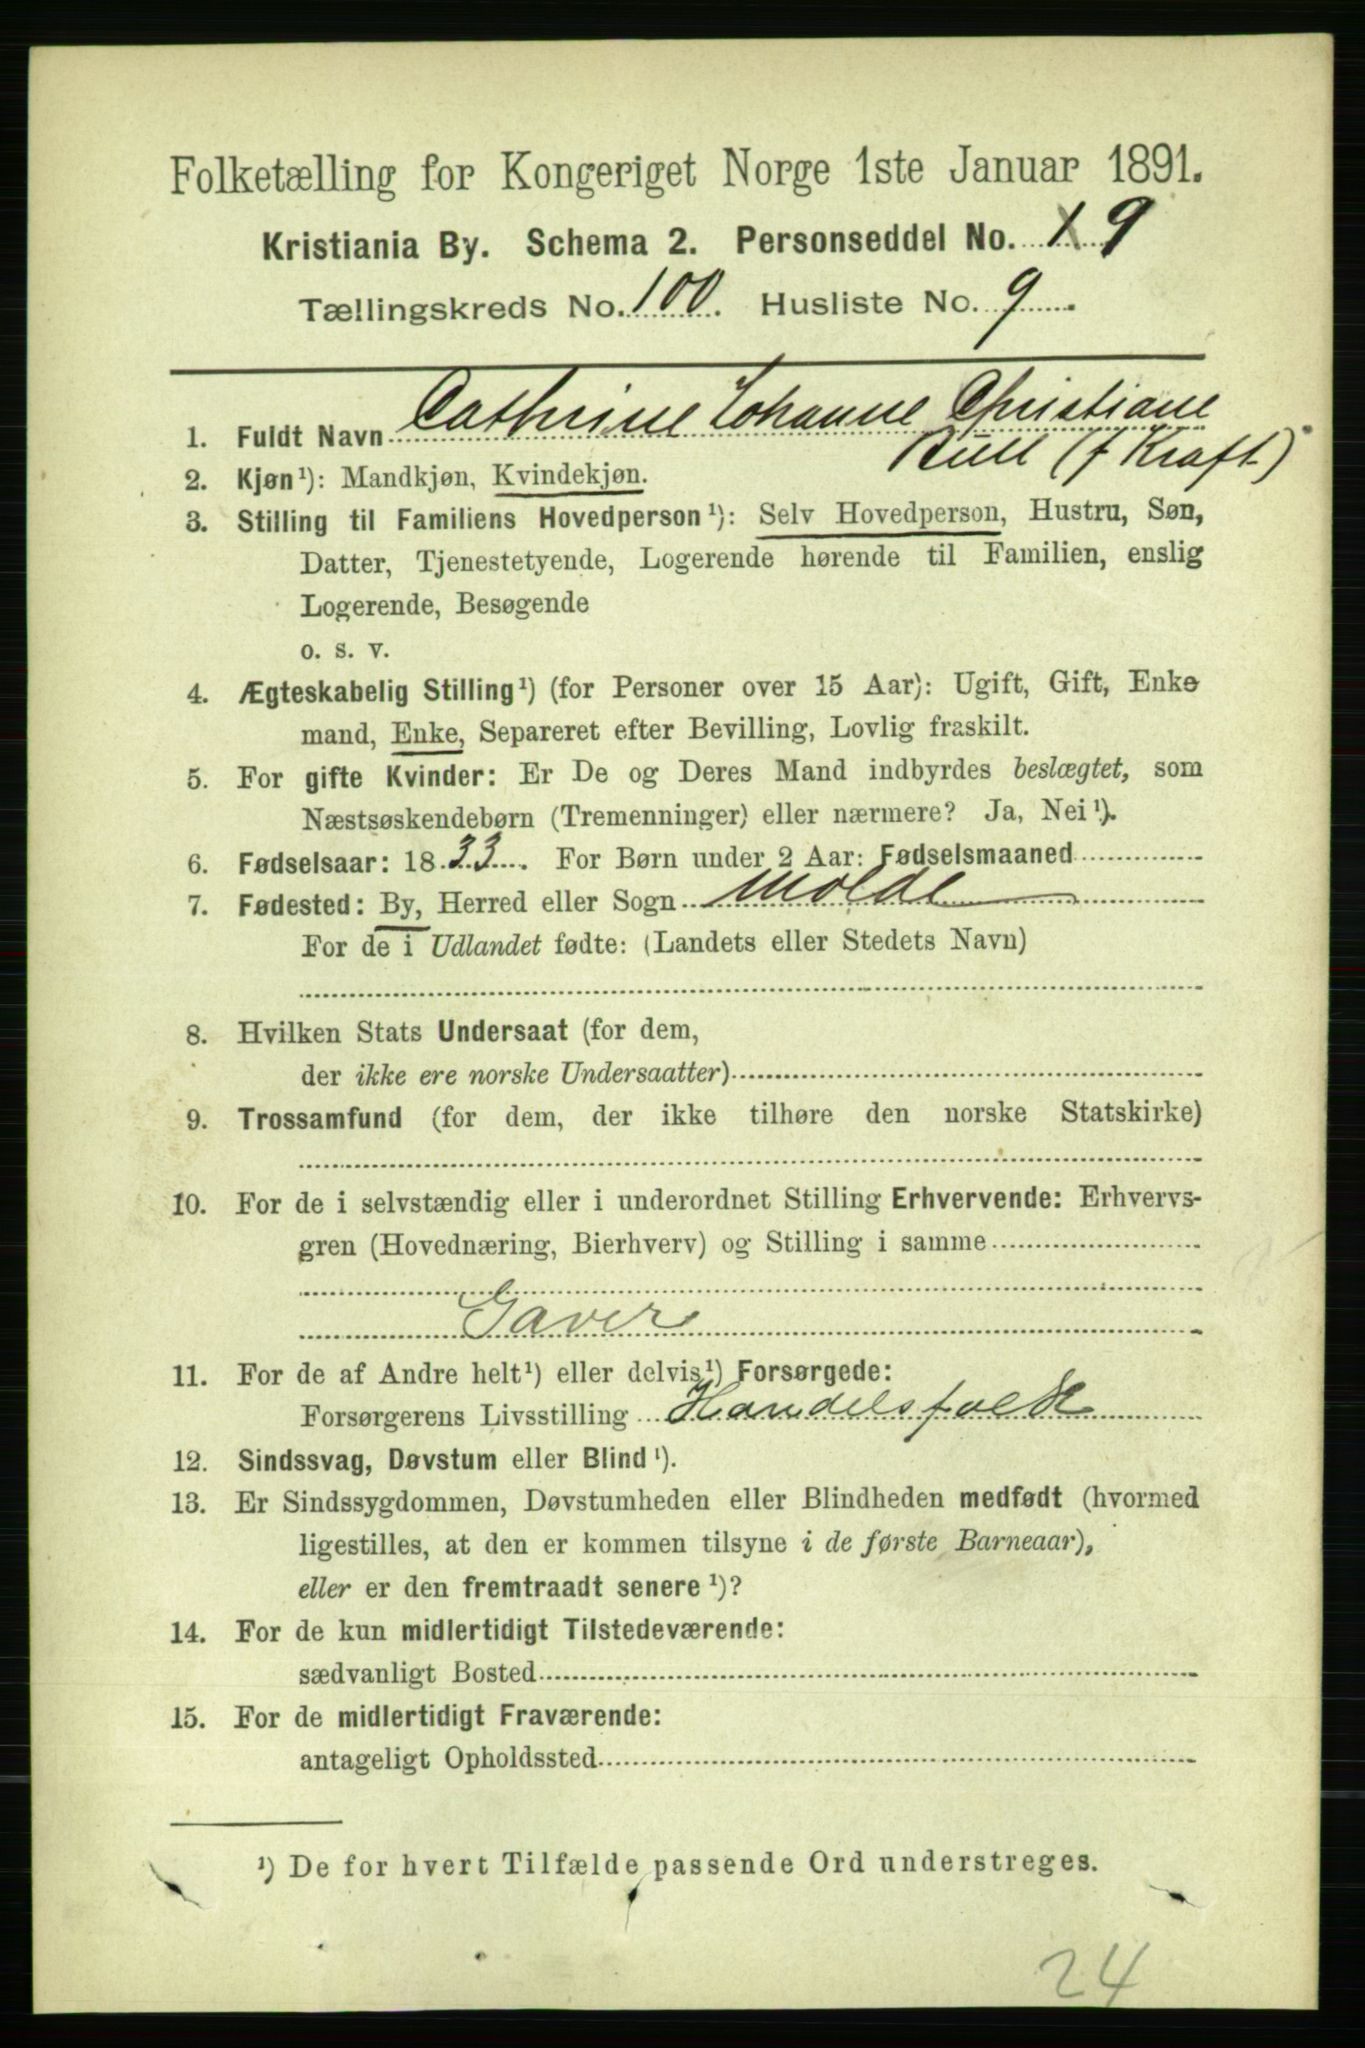 Folketælling for Kongeriget Norge 1ste Januar 1891.
Kristiania By. Schema 2. Personseddel No. 1 9
Tællingskreds No. 100. Husliste No. 9.
1. Fuldt Navn Cathrine Johanne Christiane
Bull (f Kraft)
2. Kjøn¹): Mandkjøn, Kvindekjøn.
3. Stilling til Familiens Hovedperson¹): Selv Hovedperson, Hustru, Søn,
Datter, Tjenestetyende, Logerende hørende til Familien, enslig
Logerende, Besøgende
o. s. v.
4. Ægteskabelig Stilling¹) (for Personer over 15 Aar): Ugift, Gift, Enke
mand, Enke, Separeret efter Bevilling, Lovlig fraskilt.
5. For gifte Kvinder: Er De og Deres Mand indbyrdes beslægtet, som
Næstsøskendebørn (Tremenninger) eller nærmere? Ja, Nei¹).
6. Fødselsaar: 1833. For Børn under 2 Aar: Fødselsmaaned
7. Fødested: By, Herred eller Sogn Molde
For de i Udlandet fødte: (Landets eller Stedets Navn)
8. Hvilken Stats Undersaat (for dem,
der ikke ere norske Undersaatter)
9. Trossamfund (for dem, der ikke tilhøre den norske Statskirke)
10. For de i selvstændig eller i underordnet Stilling Erhvervende: Erhvervs-
gren (Hovednæring, Bierhverv) og Stilling i samme
Gaver
11. For de af Andre helt¹) eller delvis¹) Forsørgede:
Forsørgerens Livsstilling Handelsfolk
12. Sindssvag, Døvstum eller Blind¹).
13. Er Sindssygdommen, Døvstumheden eller Blindheden medfødt (hvormed
ligestilles, at den er kommen tilsyne i de første Barneaar),
eller er den fremtraadt senere¹)?
14. For de kun midlertidigt Tilstedeværende:
sædvanligt Bosted
15. For de midlertidigt Fraværende:
antageligt Opholdssted
¹) De for hvert Tilfælde passende Ord understreges.
24